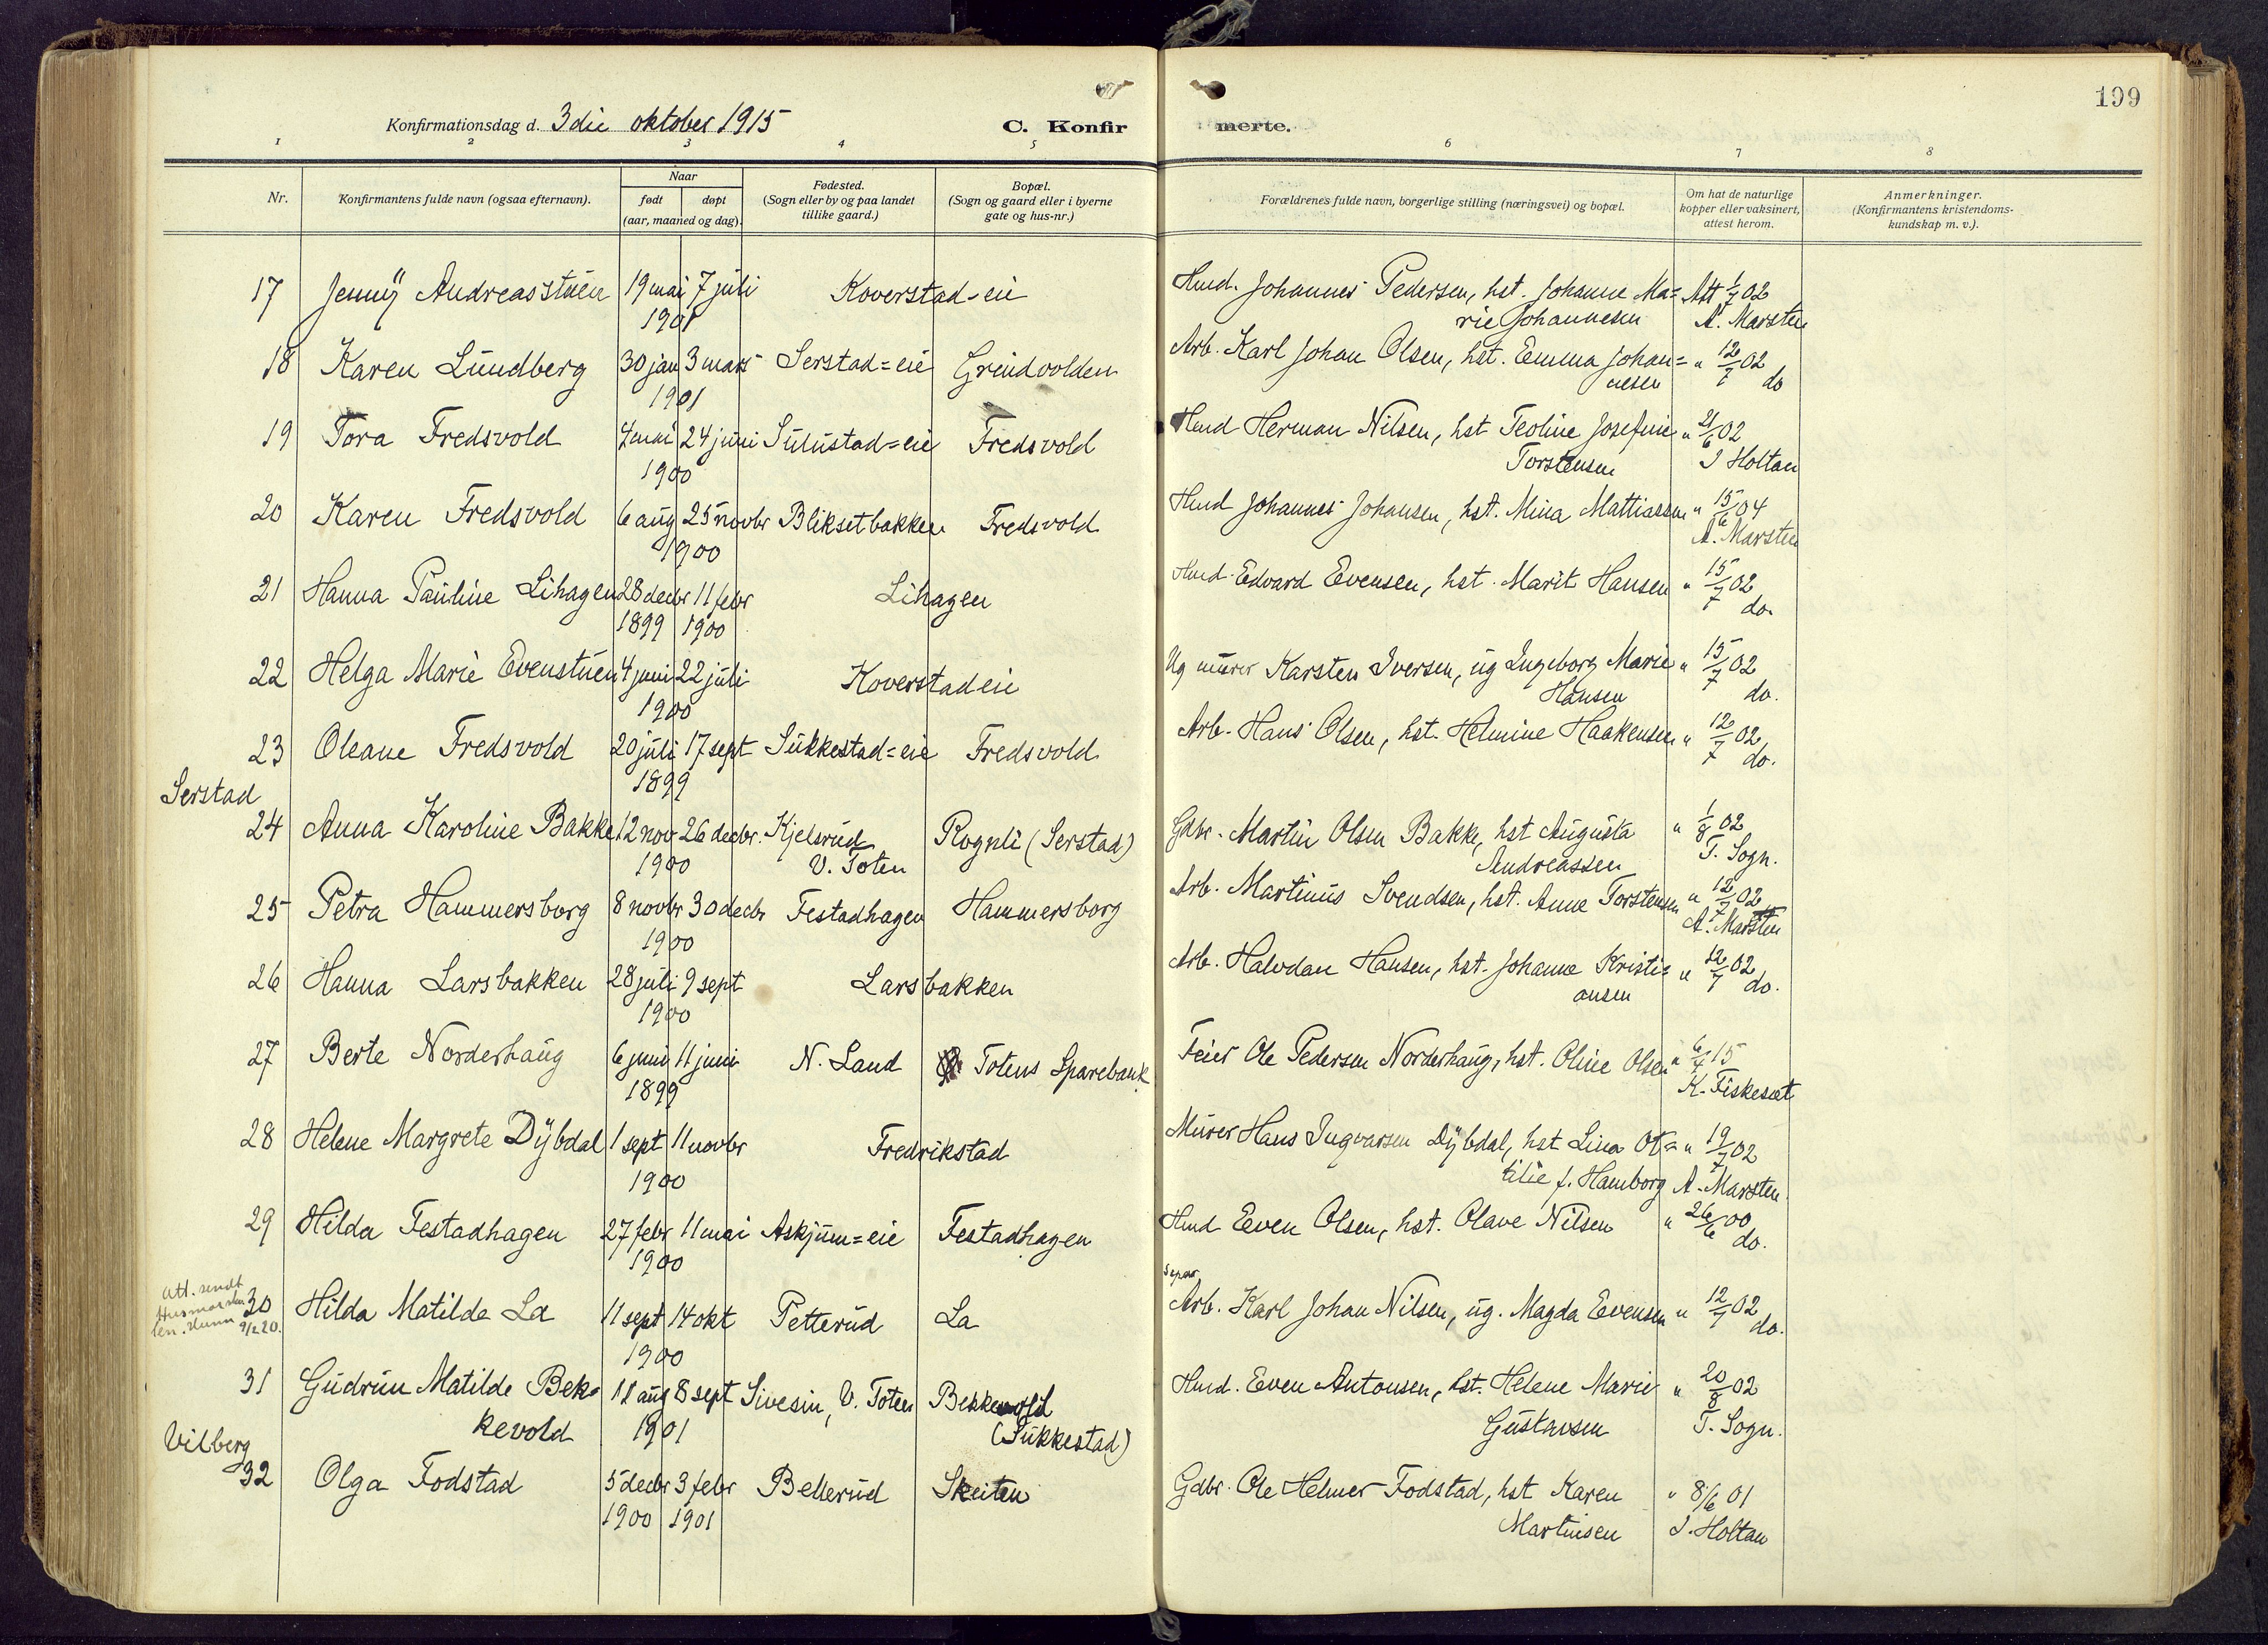 199
Konfirmationsdag d. 3die oktober 1915 C. Konfir merte.
1 2 3 4 5 6 7 8
Nr. Konfirmantens fulde navn (ogsaa efternavn). Naar født døpt (aar, maaned og dag). Fødested. (Sogn eller by og paa landet tillike gaard.) Bopæl. (Sogn og gaard eller i byerne gate og hus-nr.) Forældrenes fulde navn, borgerlige stilling (næringsvei) og bopæl. Om hat de naturlige kopper eller vaksinert, attest herom. Anmerkninger. (Konfirmantens kristendoms-kundskap m. v.).
17 Jenny Andreasstuen 19 mai 7 juli Koverstad-eie Hmd. Johannes Pedersen, hst. Johanne Ma= Att 1/7 02
1901 rie Johannesen A. Marsten
18 Karen Lundberg 30 jan 3 mars Serstad=eie Grindvolden Arb. Karl Johan Olsen, hst. Emma Johan= " 12/7 02
1901 nesen do
19 Tora Fredsvold 4 mai 24 juni Sulustad=eie Fredsvold Hmd Herman Nilsen, hst Teoline Josefine " 21/6 02
1900 Torstensen I Holtan
20 Karen Fredsvold 6 aug 25 novbr Bliksetbakken Fredsvold Hmd Johannes Johansen, hst. Mina Mattiassen " 15/6 04
1900 A. Marsten
21 Hanna Pauline Lihagen 28 decbr 11 febr Lihagen Hmd. Edvard Evensen, hst. Marit Hansen " 15/7 02
1899 1900 do.
22 Helga Marie Evenstuen 4 juni 22 juli Koverstadeie Ug murer Karsten Iversen, ug Ingeborg Marie " 15/7 02
1900 Hansen do.
23 Oleane Fredsvold 20 juli 17 sept Sukkestad=eie Fredsvold Arb. Hans Olsen, hst. Helmine Haakensen " 12/7 02
1899 do.
Serstad
24 Anna Karoline Bakke 12 nov 26 decbr. Kjelsrud Rognli (Serstad) Gdbr. Martin Olsen Bakke, hst Augusta " 1/8 02
1900 V. Toten Andreassen T. Sogn.
25 Petra Hammersborg 8 novbr 30 decbr Festadhagen Hammersborg Arb. Martinus Svendsen, hst. Anne Torstensen " 12/7 02
1900 A. Marsten
26 Hanna Larsbakken 28 juli 9 sept Larsbakken Arb. Halvdan Hansen, hst. Johanne Kristi= " 12/7 02
1900 ansen do.
27 Berte Norderhaug 6 juni 11 juni N. Land Totens Sparebank Feier Ole Pedersen Norderhaug, hst. Oline Olsen " 6/4 15
1899 K. Fiskeseet
28 Helene Margrete Dybdal 1 sept 11 novbr Fredrikstad Murer Hans Ingvarsen Dybdal, hst Lina Ot= " 19/7 02
1900 tilie f. Hamborg A. Marsten
29 Hilda Festadhagen 27 febr 11 mai Askjum=eie Festadhagen Hmd Even Olsen, hst. Olave Nilsen " 26/6 00
1900 do.
Att. sendt
len. Hunn 9/2 20.
separ
30 Hilda Matilde La 11 sept 14 okt Petterud La Arb. Karl Johan Nilsen, ug. Magda Evensen " 12/7 02
1900 do.
31 Gudrun Matilde Bek= 11 aug 8 sept Sivesin, V. Toten Bekkevold Hmd. Even Antonsen, hst. Helene Marie " 20/8 02
kevold 1901 (Sukkestad) Gustavsen T. Sogn.
Vilberg
32 Olga Fodstad 5 decbr 3 febr Bellerud Skeiten Gdbr. Ole Helmer Fodstad, hst Karen " 8/6 01
1900 1901 Martinsen I. Holtan